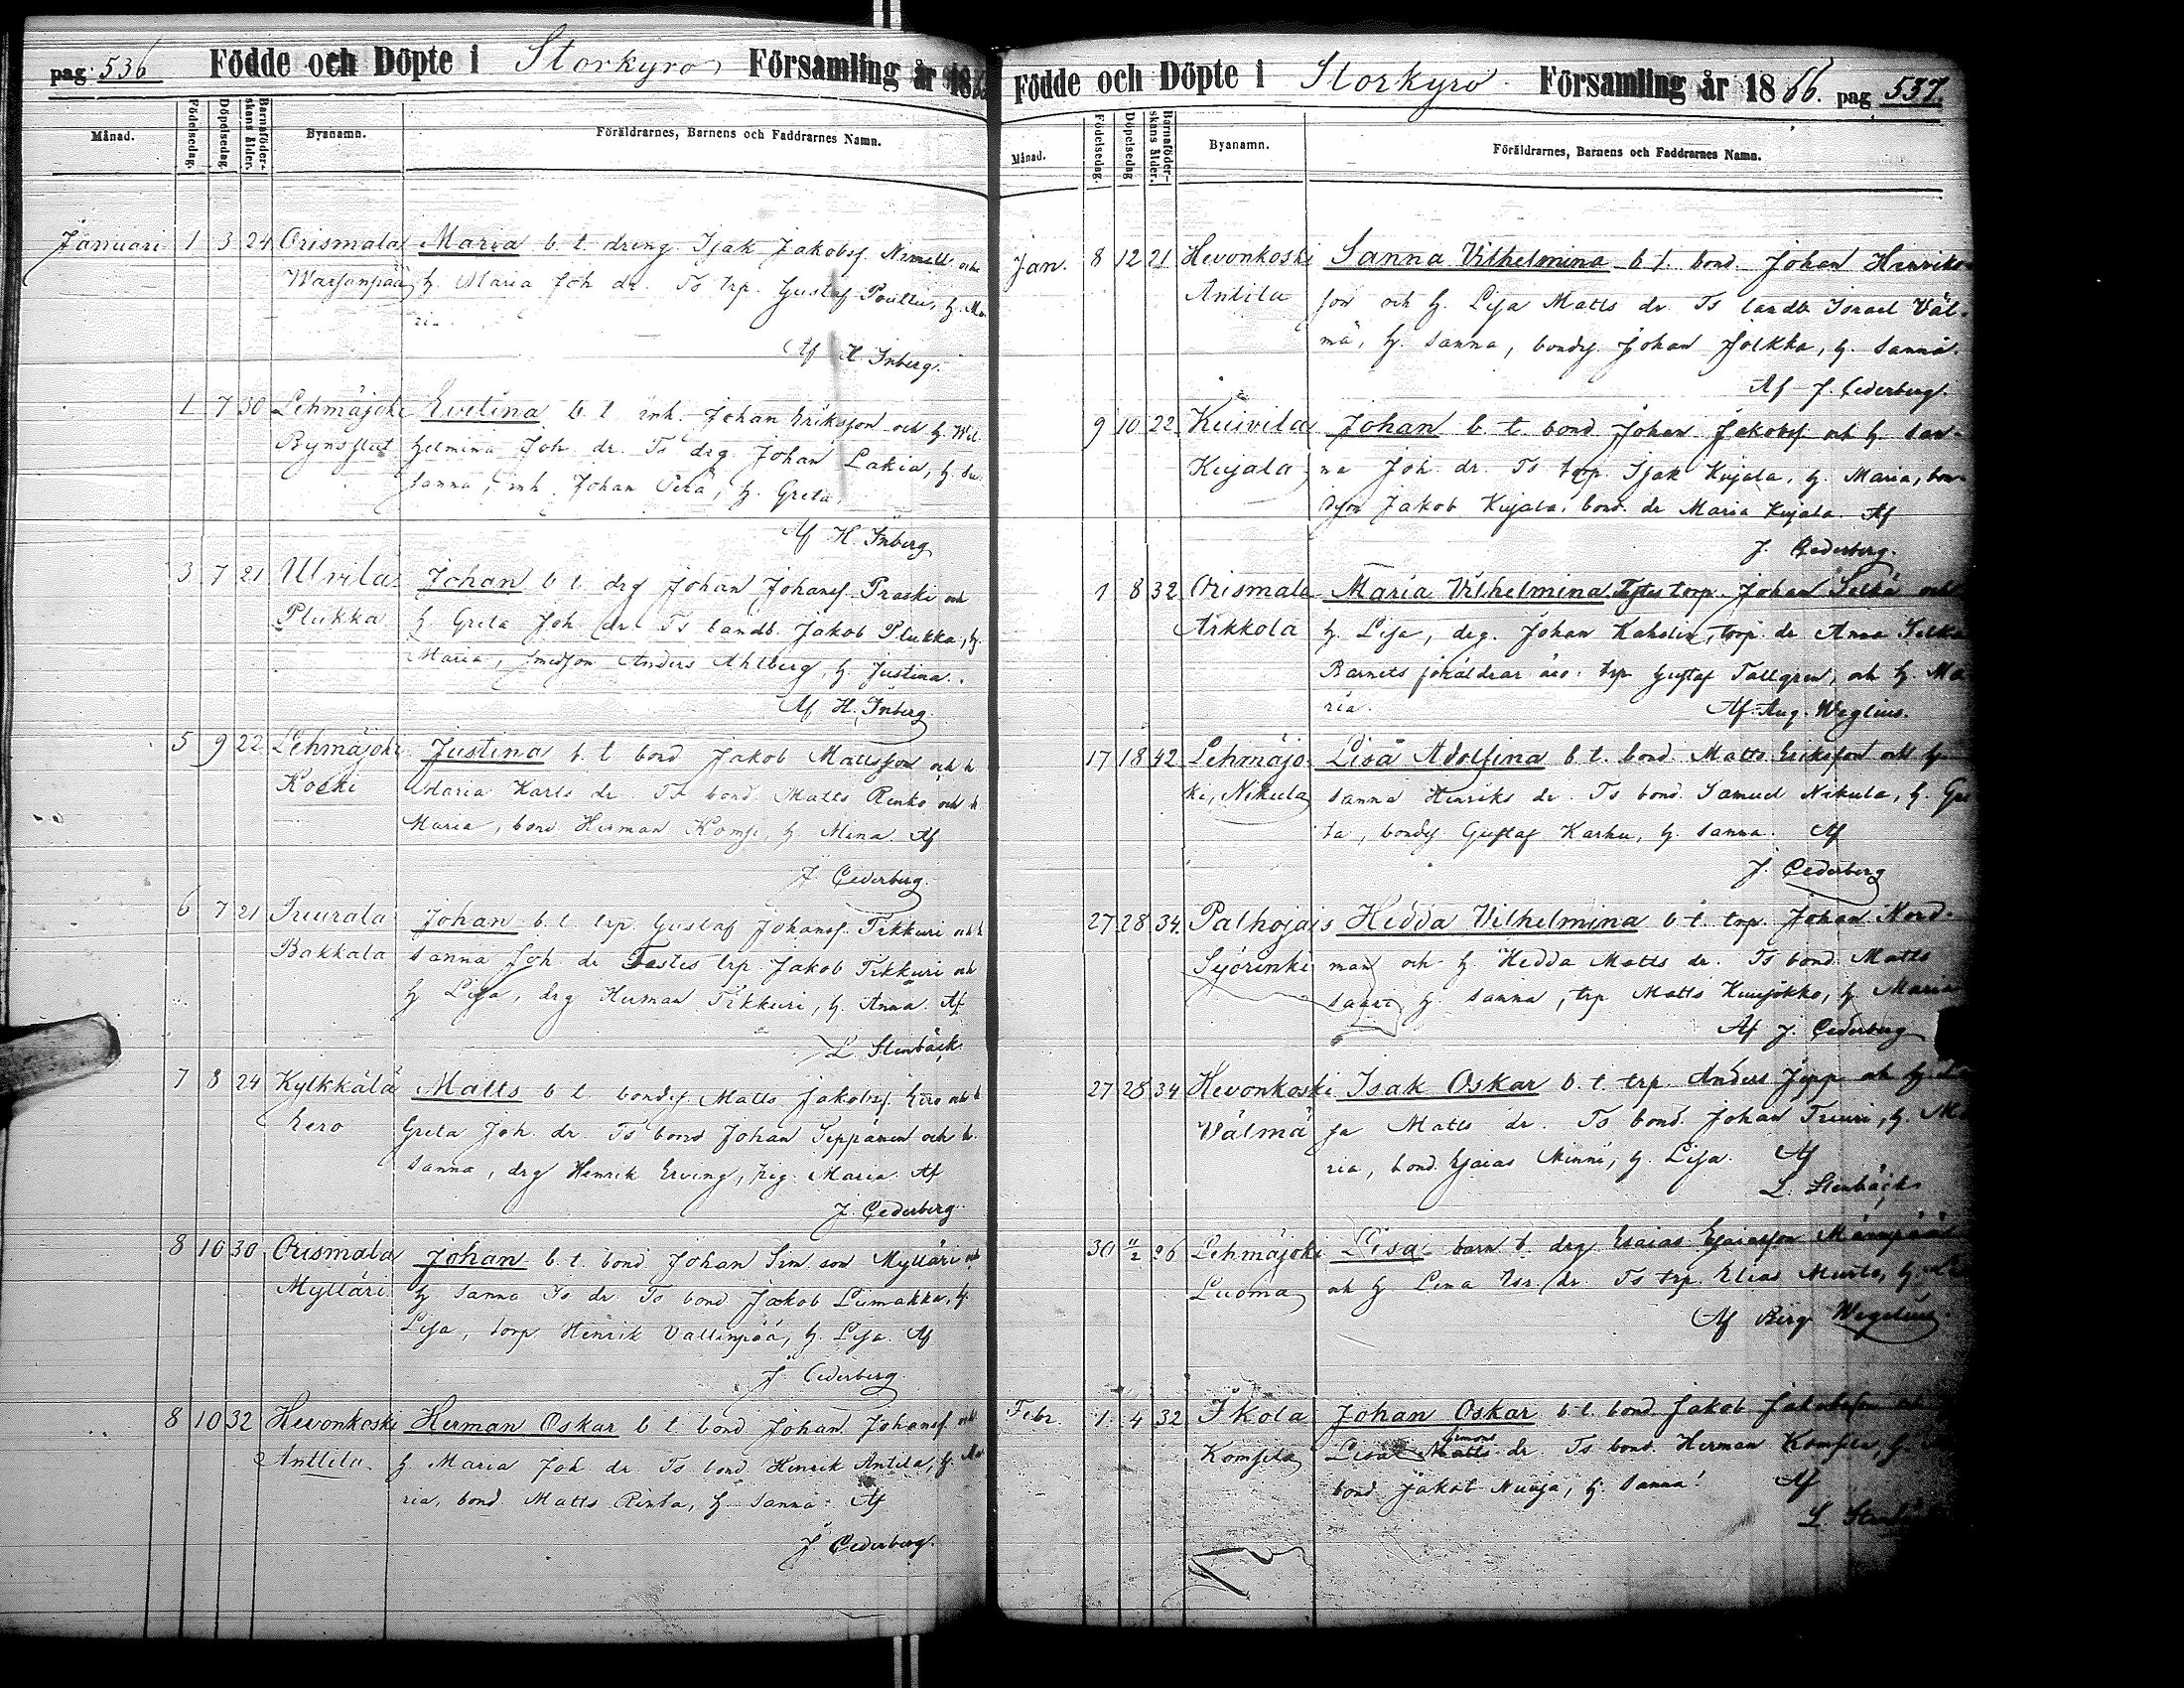 pag 536 Födde och Döpte i Storkyro Församling år 18
Månad. Födelsedag. Döpelsedag. Barnaföderskans ålder. Byanamn. Föräldrarnes, Barnens och Faddrarnes Namn.
Januari 1 3 24 Orismala Maria b. t. dreng Isak Jakobsf.
h. Maria Joh. dr. Ts trp. Gustaf h. Ma
ria.
Af H. Inberg.
1 7 30 Lehmäjoki Evelina b. t. inh. Johan Eriksson och h. Wil
helmina Joh. dr. Ts drg. Johan Lakia, h. Su
sanna, inh. Johan h. Greta.
Af H. Inberg
3 7 21 Ulvila Johan b. t. drg Johan Johansf. Praski och
Plukka h. Greta Joh. dr. Ts landb. Jakob Plukka, h.
Maria, smedson Anders Ahlberg, h. Justina.
Af H. Inberg.
5 9 22 Lehmäjoki Justina b. t. bond Jakob Mattsson och h
Koski Maria Karls dr. Ts bond. Matts Renko och h
Maria, bond Herman h. Mina. Af
J. Cederberg.
6 7 21 Tuurala Johan b. t. trp. Gustaf Johansf. Tikkuri och h
Bakkala Sanna Joh. dr Testes trp. Jakob Tikkuri och
h Lisa, drg Herman Tikkuri, h. Anna. Af
L. Stenbäck.
7 8 24 Kylkkälä Matts b t. bondes. Matts Jakobsf. Eero och h
Eero Greta Joh. dr. Ts bond Johan Seppänen och h.
Sanna, drg Henrik Erving, pig. Maria. Af
J. Cederberg.
8 10 30 Orismala Johan b. t. bond Johan Sim. son Mylläri och
Mylläri h. Sanna Is. dr. Ts bond Jakob Liimakka, h.
Lisa, torp. Henrik Vallinpää, h. Lisa. Af
J. Cederberg.
8 10 32 Hevonkoski Herman Oskar b t. bond Johan Johansf. och
Anttila. h Maria Joh. dr Ts bond Henrik Antila, h. Ma
ria, bond. Matts Rinta, h. Sanna. Af
J. Cederberg.
Födde och Döpte i Storkyro Församling år 1866. pag 537.
Månad. Födelsedag. Döpelsedag Barnaföderskans ålder. Byanamn. Föräldrarnes, Barnens och Faddrarnes Namn.
Jan. 8 12 21 Hevonkoski Sanna Vilhelmina b t. bond. Johan Henriks
Antila son och h. Lisa Matts dr. Ts landb Israel Väl
mä, h. Sanna, bondes. Johan Jolkka, h. Sanna.
Af J. Cederberg.
9 10 22 Kuivila Johan b t. bond Johan Jakobsf. och h. San
Kujala na Joh. dr. Ts torp. Isak Kujala, h. Maria, bon
dson Jakob Kujala, bond. dr Maria Kujala. Af
J. Cederberg.
1 8 32 Orismala Maria Vilhelmina. Testes torp. Johan Selkä och
Arkkola h. Lisa, drg. Johan Kaholin, torp. dr Anna Selkä
Barnets föräldrar äro: trp Gustaf Tallgren, och h. Ma
ria. Af Aug. Weglius.
17 18 42 Lehmäjo Lisa Adolfina b t. bond. Matts Eriksson och h
ki, Nikula Sanna Henriks dr. Ts bond. Samuel Nikula, h. Gre
ta, bondes Gustaf Karhu, h. Sanna. Af
J. Cederberg
27 28 34. Palhojais Hedda Vilhelmina b t. trp. Johan Nord
Sjörinki man och h. Hedda Matts dr. Ts bond. Matts
Saari h. Sanna, trp. Matts h. Maria
Af J. Cederberg
27 28 34 Hevonkoski Isak Oskar b. t. trp. Anders Jepp och h. Li
Välmä sa Matts dr. Ts bond. Johan Tuuri, h. Ma
ria, bond. Esaias Minni, h. Lisa. Af
L. Stenbäck
30 11/2 26 Lehmäjoki Lisa barn t. drg Esaias Esaiasson
Luoma och h. Lena dr. Ts trp. Elias Musto, h.
Af Berg Wegelius.
Febr. 1. 4 32 Ikola Johan Oskar b. t. bond. Jakob
Simons
Komsila Lisa Matts dr. Ts bond. Herman Komsila, h.
bond Jakob h. Sanna. Af
L.